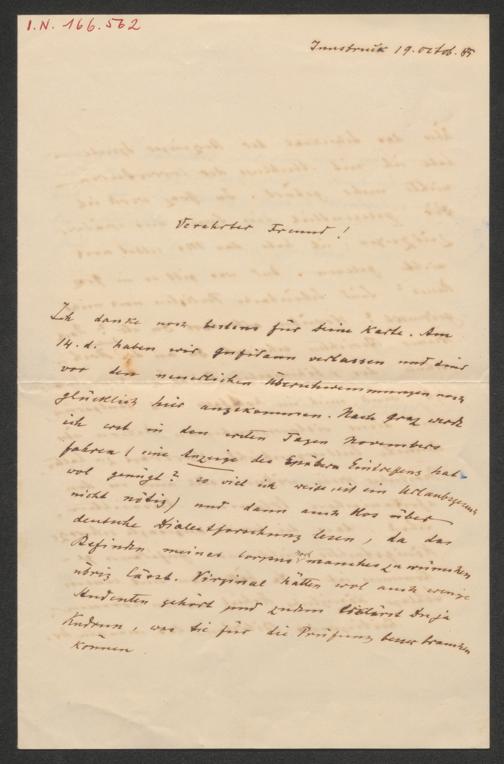 I.N. 166.562
Innsbruck 19. octob. 85
Verehrter Freund!
Ich danke noch bestens für Deine Karte. Am
14. d. haben wir Gufidaun verlassen und sind
vor den neuerlichen Überschwemmungen noch
glücklich hier angekommen. Nach Graz werde
ich erst in den ersten Tagen Novembers
fahren (eine Anzeige des spätern Eintreffens hat
wol genügt? so viel ich weiss ist ein Urlaubsgesuch
nicht nötig) und dann auch blos über
deutsche Dialectforschung lesen, da das
Befinden meines corpus noch manches zu wünschen
übrig lässt. Virginal hätten wol auch wenige
Studenten gehört und zudem erklärst Du ja
Kudrun, was sie für die Prüfung besser brauchen
können.